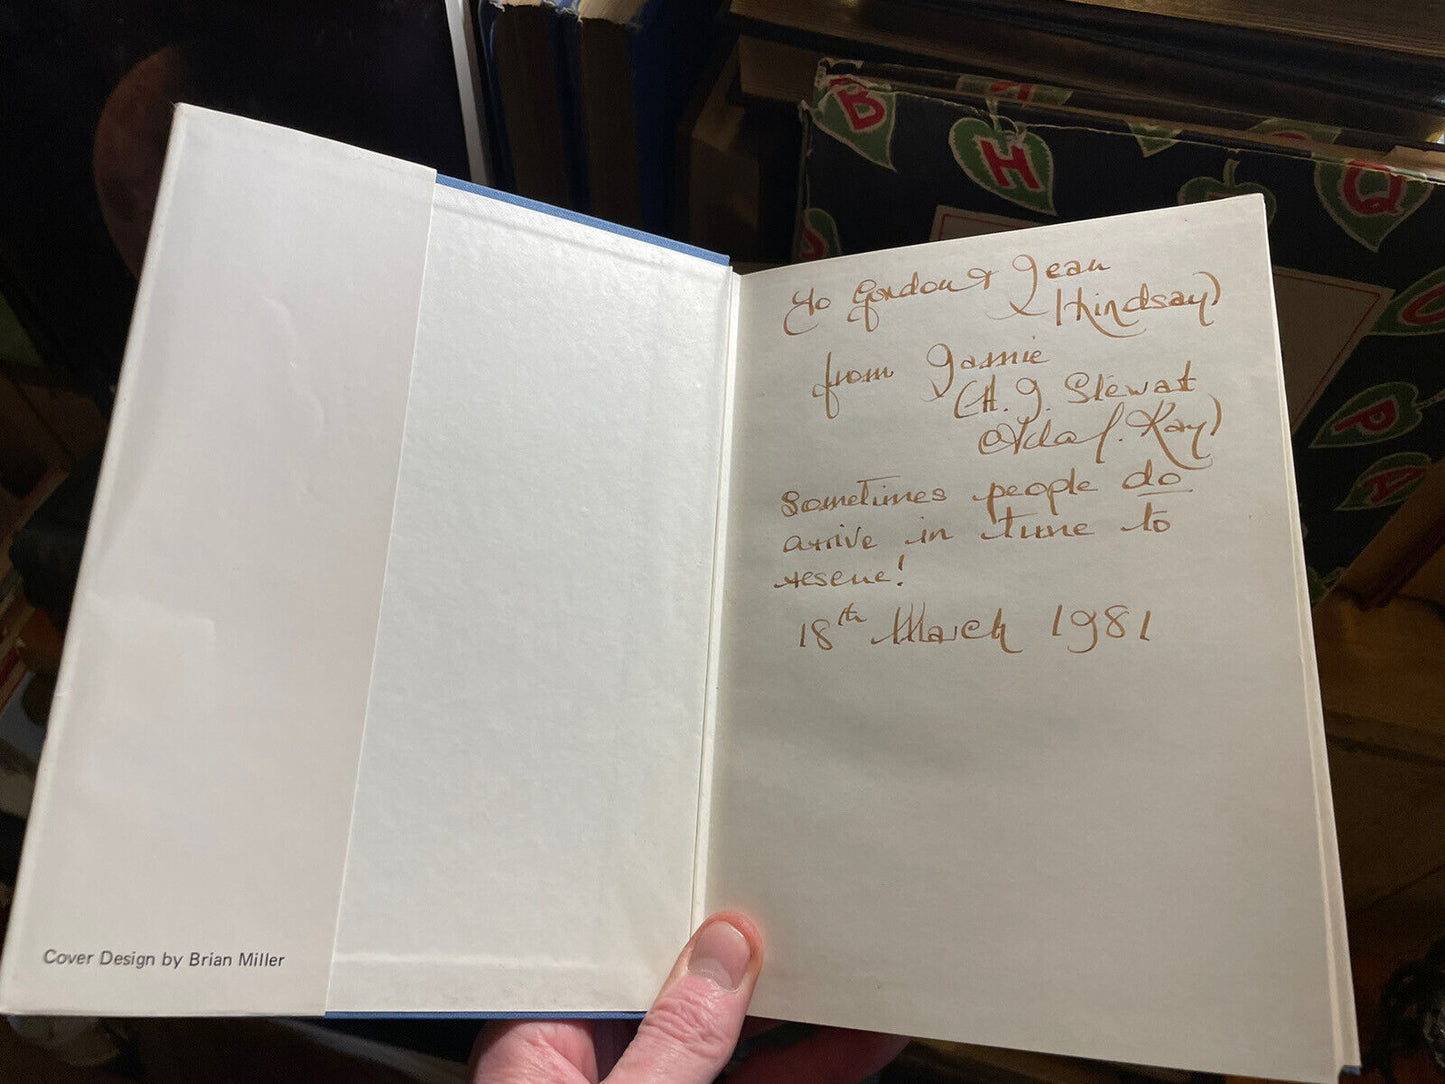 To Gordon & Jean
(Lindsay)
from Jamie
(A. J. Stewart
Ada F. Kay)
Sometimes people do
arrive in time to
rescue!
18th March 1981
Cover Design by Brian Miller
B
H
Q
P
A